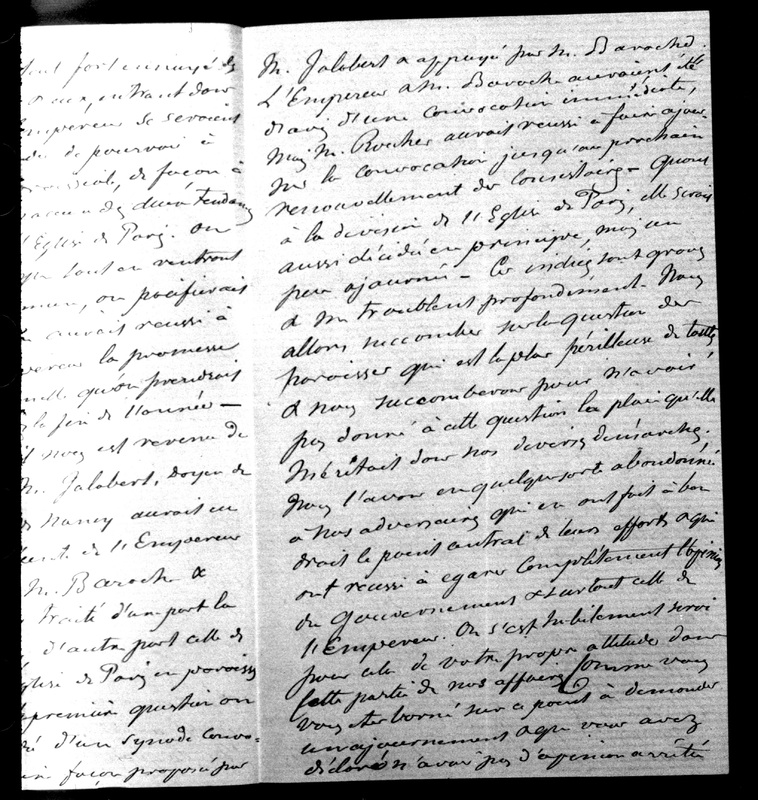 tout fort ennuyé des
entrant dans
Empereur se seroient
de pourvoir à
de façon à
des deux tendances
l'Eglise de Paris. on
que tout en rentrant
on pacifierait
aurait réussi à
la promesse
qu'on prendrait
la fin de l'année —
nous est revenu de
M. Jalabert, doyen de
de Nancy aurait eu
de l'Empereur
M. Baroche &
traité d'une part la
d'autre part celle de
Eglise de Paris en paroisses
première question on
d'un Synode convo-
façon proposée par
M. Jalabert & appuyé par M. Baroche.
L'Empereur & M. Baroche auraient été
d'avis d'une convocation immédiate,
mais M. Rouher aurait réussi à faire ajour-
ner la convocation jusqu'au prochain
renouvellement des Consistoires — Quant
à la division de l'Eglise de Paris, elle serait
aussi décidée en principe, mais un
peu ajournée — Ces indices sont graves
& me troublent profondément. Nous
allons succomber sur la question des
paroisses qui est la plus périlleuse de toutes
& nous succomberons pour n'avoir
pas donné à cette question la place qu'elle
méritait dans nos diverses démarches.
Nous l'avons en quelque sorte abandonné
à nos adversaires qui en ont fait à bon
droit le point central de leurs efforts & qui
ont réussi à égarer complètement l'opinion
du Gouvernement & surtout celle de
l'Empereur. On s'est habilement servi
pour cela de votre propre attitude dans
cette partie de nos affaires. Comme vous
vous êtes borné sur ce point à demander
un ajournement & que vous avez
déclaré n'avoir pas d'opinion arrêtée